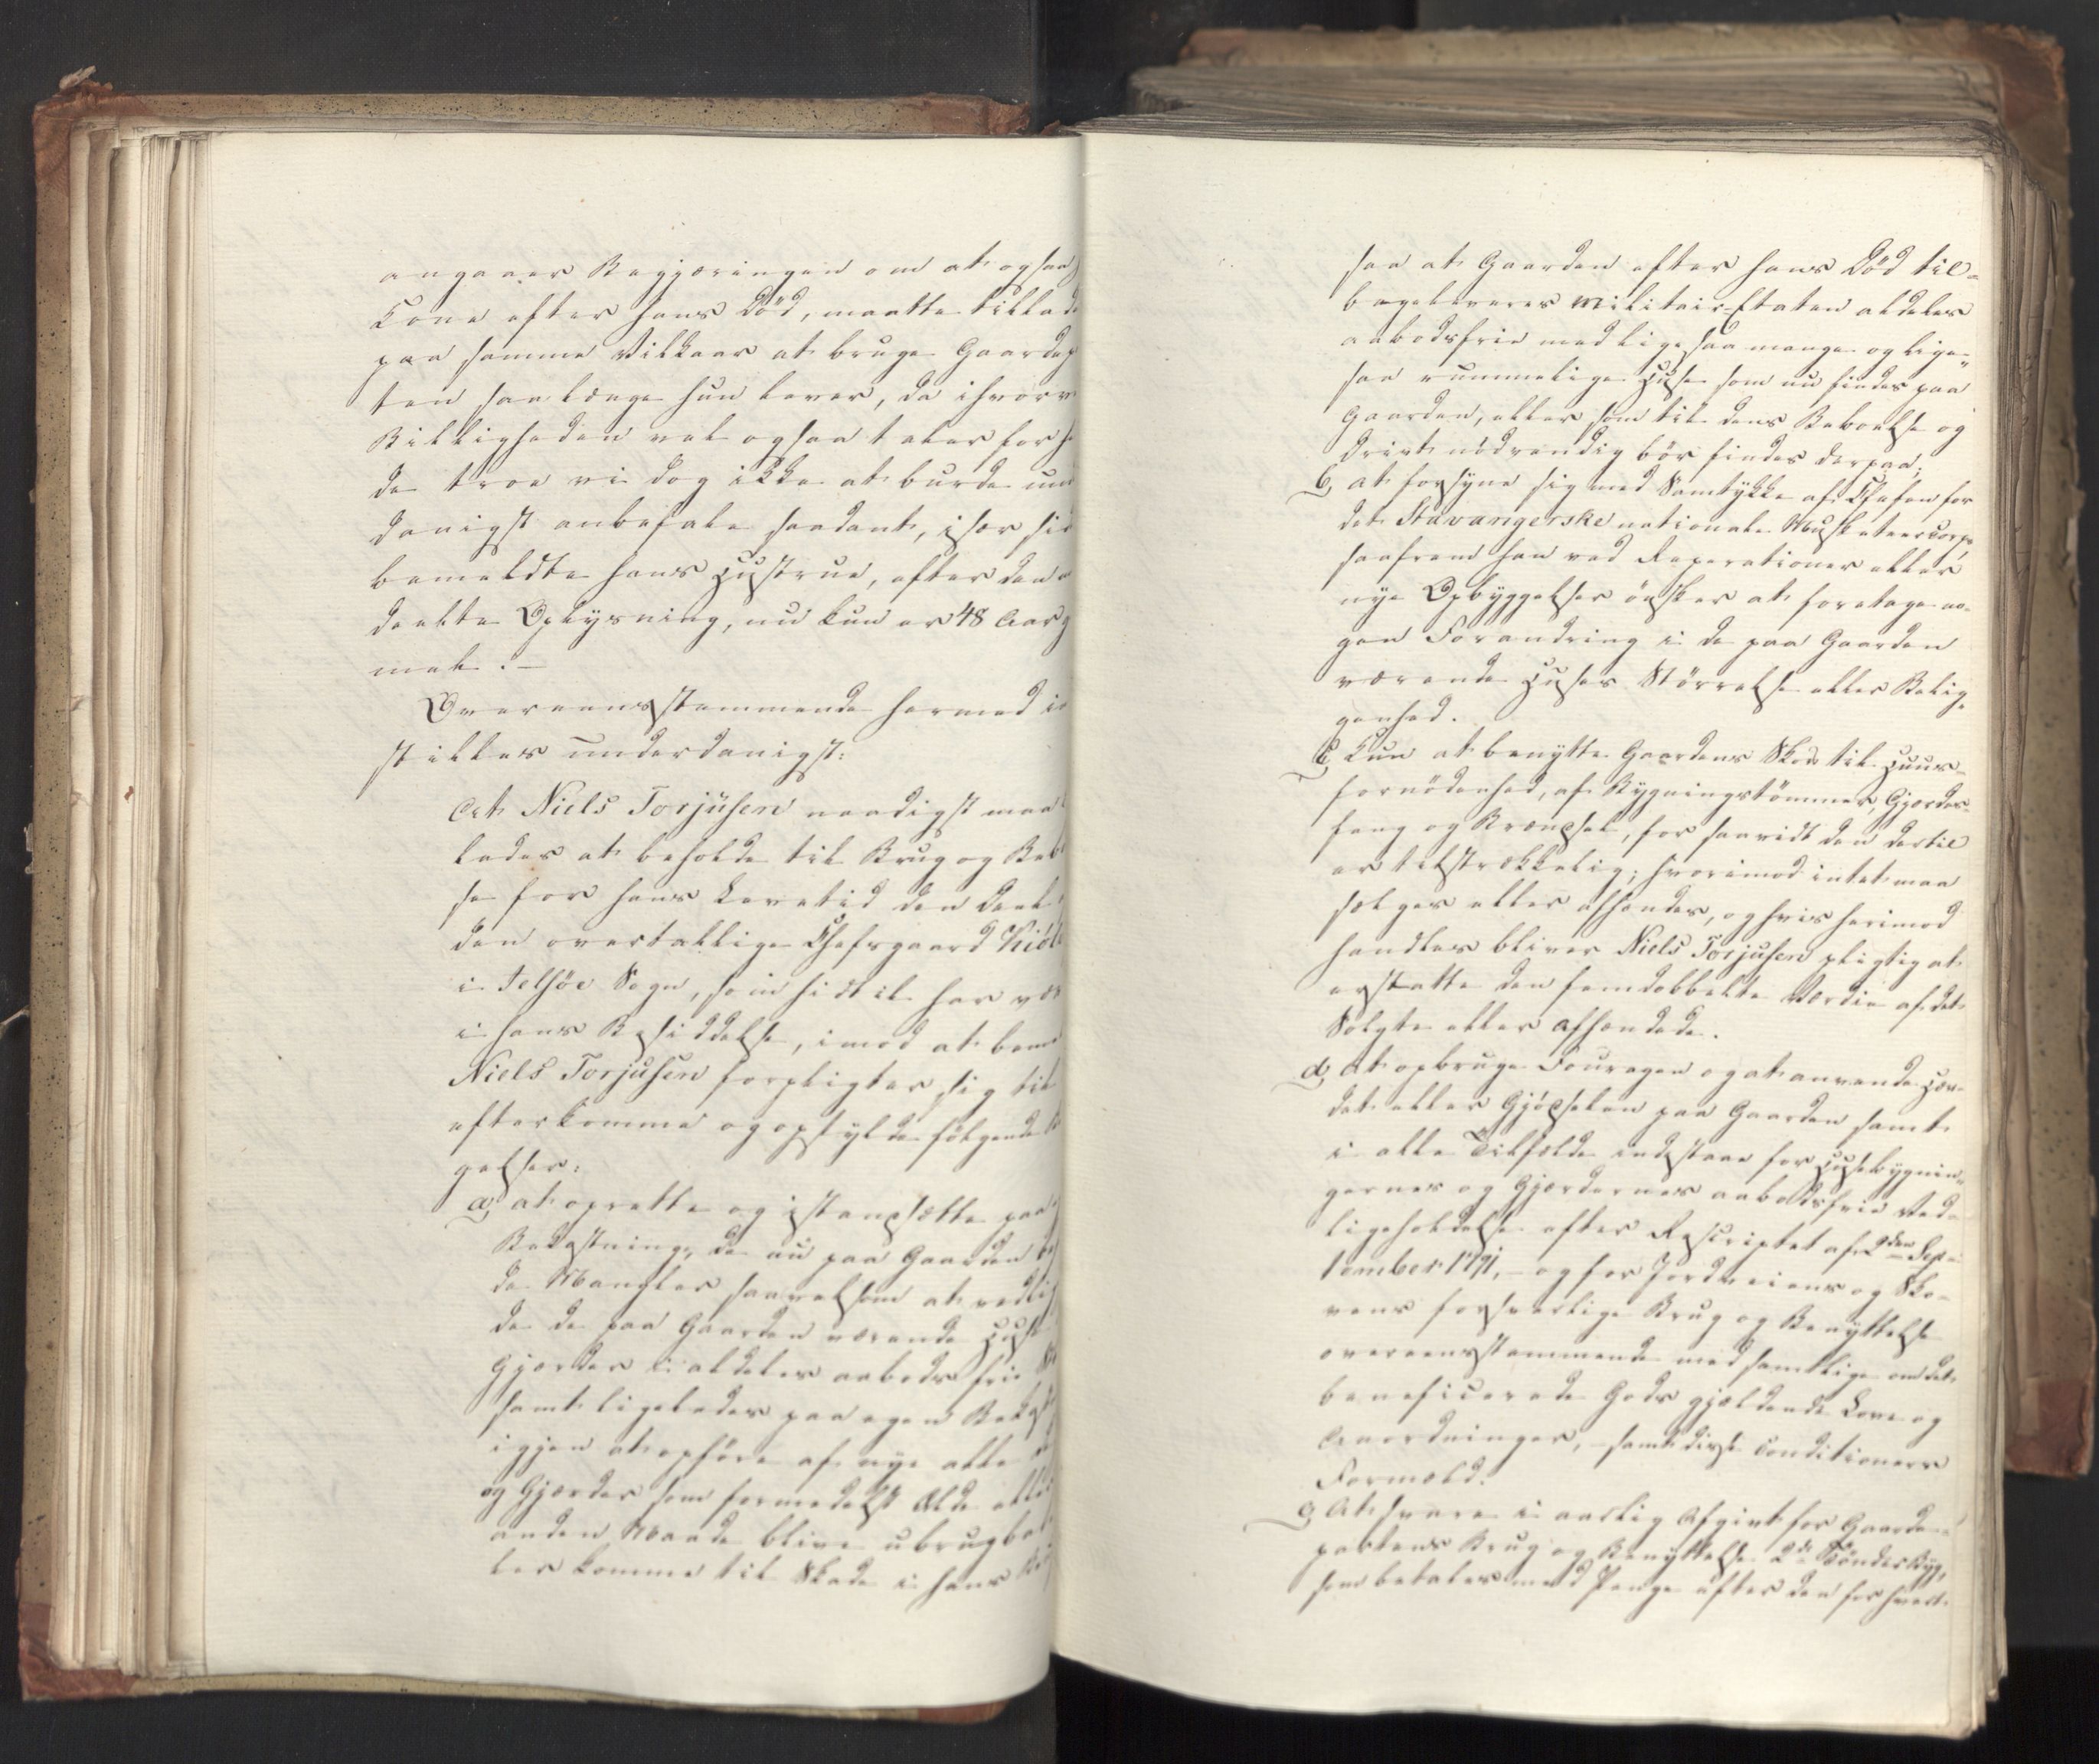 angaaer Begjæringen om at ogsaa
Kone efter hans Död, maatte tillade
paa samme Vilkaar at bruge Gaardep
ten saa længe hun lever, da ihvorv
Billigheden vel ogsaa taler for he
de troe vi dog ikke at burde und
danigst anbefale saadant, især si
bemeldte hans Hustrue, efter den m
deelte Oplysning, nu kun er 48 Aar g
mel. –
Overeensstemmende hermed in
stilles underdanigst:
At Niels Torjusen naadigst maa
lades at beholde til Brug og Beb
se for hans Levetid den Deel
den overtallige Chefsgaard Kiöl
i Jelsöe Sogn, som hidtil har vær
i hans Besiddelse, imod at bem
Niels Torjusen forpligter sig til
efterkomme og opfylde følgende
gelser:
a, at oprette og istandsætte paa
Bekostning, de nu paa Gaarden be
de Mangler saavelsom at vedlig
de de paa Gaarden værende Huse
Gjærder i aldeles aabodsfrie St
samt ligeledes paa egen Bekost
igjen at opføre af nye alle de
og Gjærder som formedelst Ælde elle
anden Maade blive ubrugbar
ler komme til Skade i hans
saa at Gaarden efter hans Död til-
bageleveres Militair-Etaten aldeles
aabodsfrie med ligesaa mange og lige-
saa rummelige Huse som nu findes paa
Gaarden, eller som til dens Beboelse og
Drivt nödvendig bör findes derpaa;
b, at forsyne sig med Samtykke af Chefen for
det Stavangerske nationale Musketeercorps,
saafremt han ved Reparationer eller
nye Opbyggelser önsker at foretage no-
gen Forandring i de paa Gaarden
værende Huses Störrelse eller Belig-
genhed.
c, Kun at benytte Gaardens Skov til Huus-
fornödenhed, af Bygningstömmer, Gjærdes-
fang og Brændsel, for saavidt den dertil
er tilstrækkelig; hvorimod intet maa
sælges eller afhændes, og hvis herimod
handles bliver Niels Torjusen pligtig at
erstatte den femdobbelte Værdie af det
Solgte eller Afhændede.
d, At opbruge Fouragen og at anvende Höe-
det eller Gjödselen paa Gaarden samt
i alle Tilfælde indestaae for Husebygnin-
gernes og Gjærdernes aabodsfrie Ved-
ligeholdelse efter Rescriptet af 2den Sep-
tember 1791, – og for Jordveiens og Sko-
vens forsvarlige Brug og Benyttelse
overeensstemmende med samtlige om det
beneficerede Gods gjældende Love og
Anordninger, – samt disse Conditioners
Formæld.
e, At svare i aarlig Afgivt for Gaarde-
partens Brug og Benyttelse 2de Tönder Byg,
som betales med Penge efter den for hvert